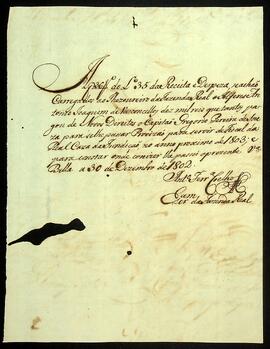 A f de L.º 35 da Receita e Despeza, se acha
Carregado ao Thezoureiro da Fazenda Real o Alferes An-
tonio Joaquim de Vasconcellos dez mil reis que tanto pa-
gou de Novo Direito o Capitão Gregorio Pereira de
para se lhe passar Provizão para servir de Fiscal da
Real Caza da Fundição no anno proximo de 1803; e
para constar onde convier lhe passei o prezente. Vª
Bella a 30 de Dezembro de 1802.
Anto. Ferr. Coelho
da Fazenda Real